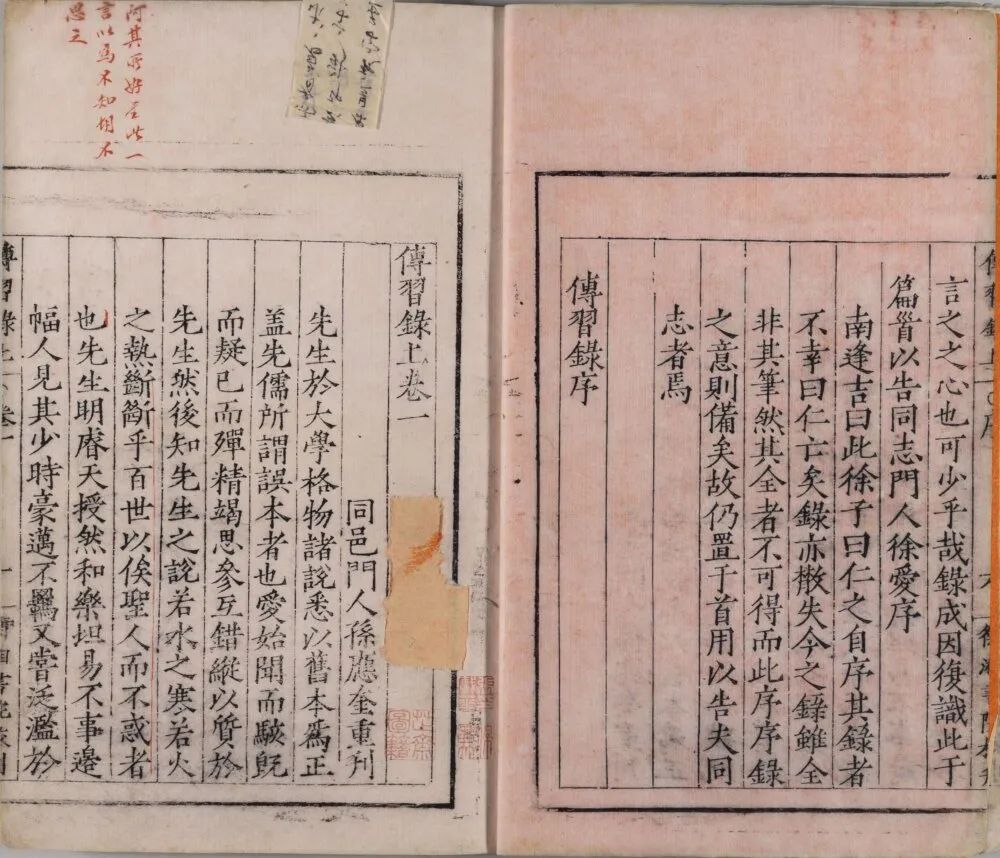 言之之心也可少乎哉錄成因復識此于
篇首以告同志門人徐愛序
南逢吉曰此徐子曰仁之自序其錄者
不幸曰仁亡矣錄亦散失今之錄雖全
非其筆然其全者不可得而此序序錄
之意則備矣故仍置于首用以告夫同
志者焉
傳習錄序
傳習錄上卷一
同邑門人孫應奎重刊
先生於大學格物諸說悉以舊本爲正
葢先儒所謂誤本者也愛始聞而駭旣
而疑已而殫精竭思參互錯縱以質於
先生然後知先生之說若水之寒若火
之熱斷斷乎百世以俟聖人而不惑者
也先生明睿天授然和樂坦易不事邊
幅人見其少時豪邁不羈又嘗泛濫於
傳習錄上 卷一
阿其所好者此一
言以爲不知胡不
思之